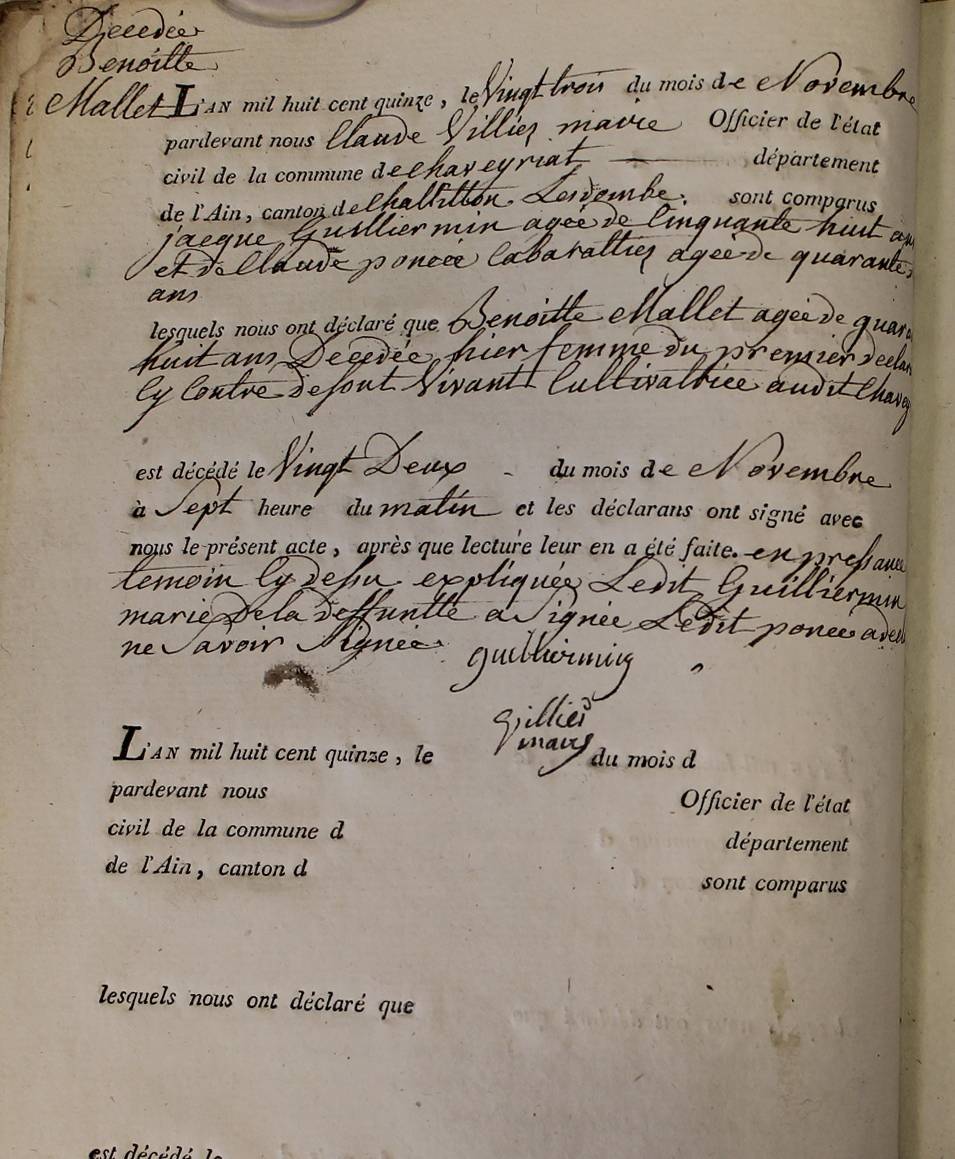 Decedée
Benoitte
Mallet
L'AN mil huit cent quinze, le Vingt trois du mois de Novembre
pardevant nous Claude Villier maire Officier de l'état
civil de la commune de chaveyriat département
de l'Ain, canton de Chattillon Lesdombe. sont comparus
jacque Guilliermin agée de Cinquante huit ans
et de Claude poncée Cabarattier agée de quarante
ans
lesquels nous ont déclaré que Benoitte Mallet agée de quara
huit ans Decedée hier femme du premier declar
Cy Contre dessut Vivant Cultivatrice audit Chavey
est décédé le Vingt Deux du mois de Novembre
à Sept heure du matin et les déclarans ont signé avec
nous le présent acte, après que lecture leur en a été faite. en pressance
temoin Cy dessu expliquée Ledit Guilliermin
marie Dela deffuntte a Signée Ledit poncée
ne Savoir Signee
guilliermin
Villier
maire
L'AN mil huit cent quinze, le du mois d
pardevant nous Officier de l'état
civil de la commune d département
de l'Ain, canton d sont comparus
lesquels nous ont déclaré que
est décédé le